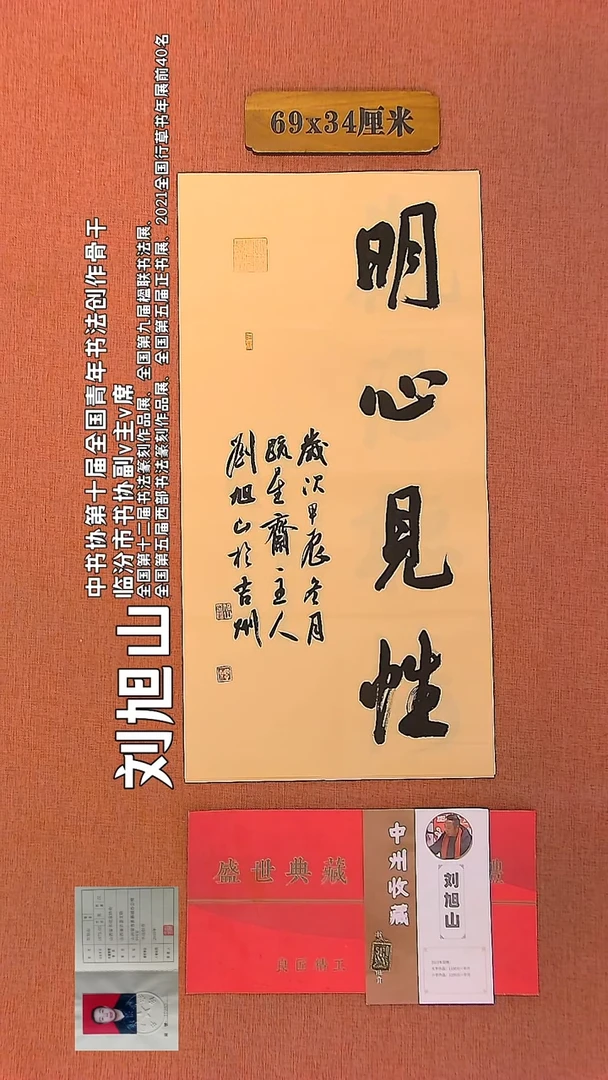 69x34厘米
明心见性
歲次甲辰冬月
䟽星齋主人
劉旭山於吉州
刘旭山
中书协第十届全国青年书法创作骨干
临汾市书协副v主v席
全国第十二届书法篆刻作品展、全国第九届楹联书法展、
全国第五届西部书法篆刻作品展、全国第五届正书展、2021全国行草书年展前40名
盛世典藏
中州收藏
刘旭山